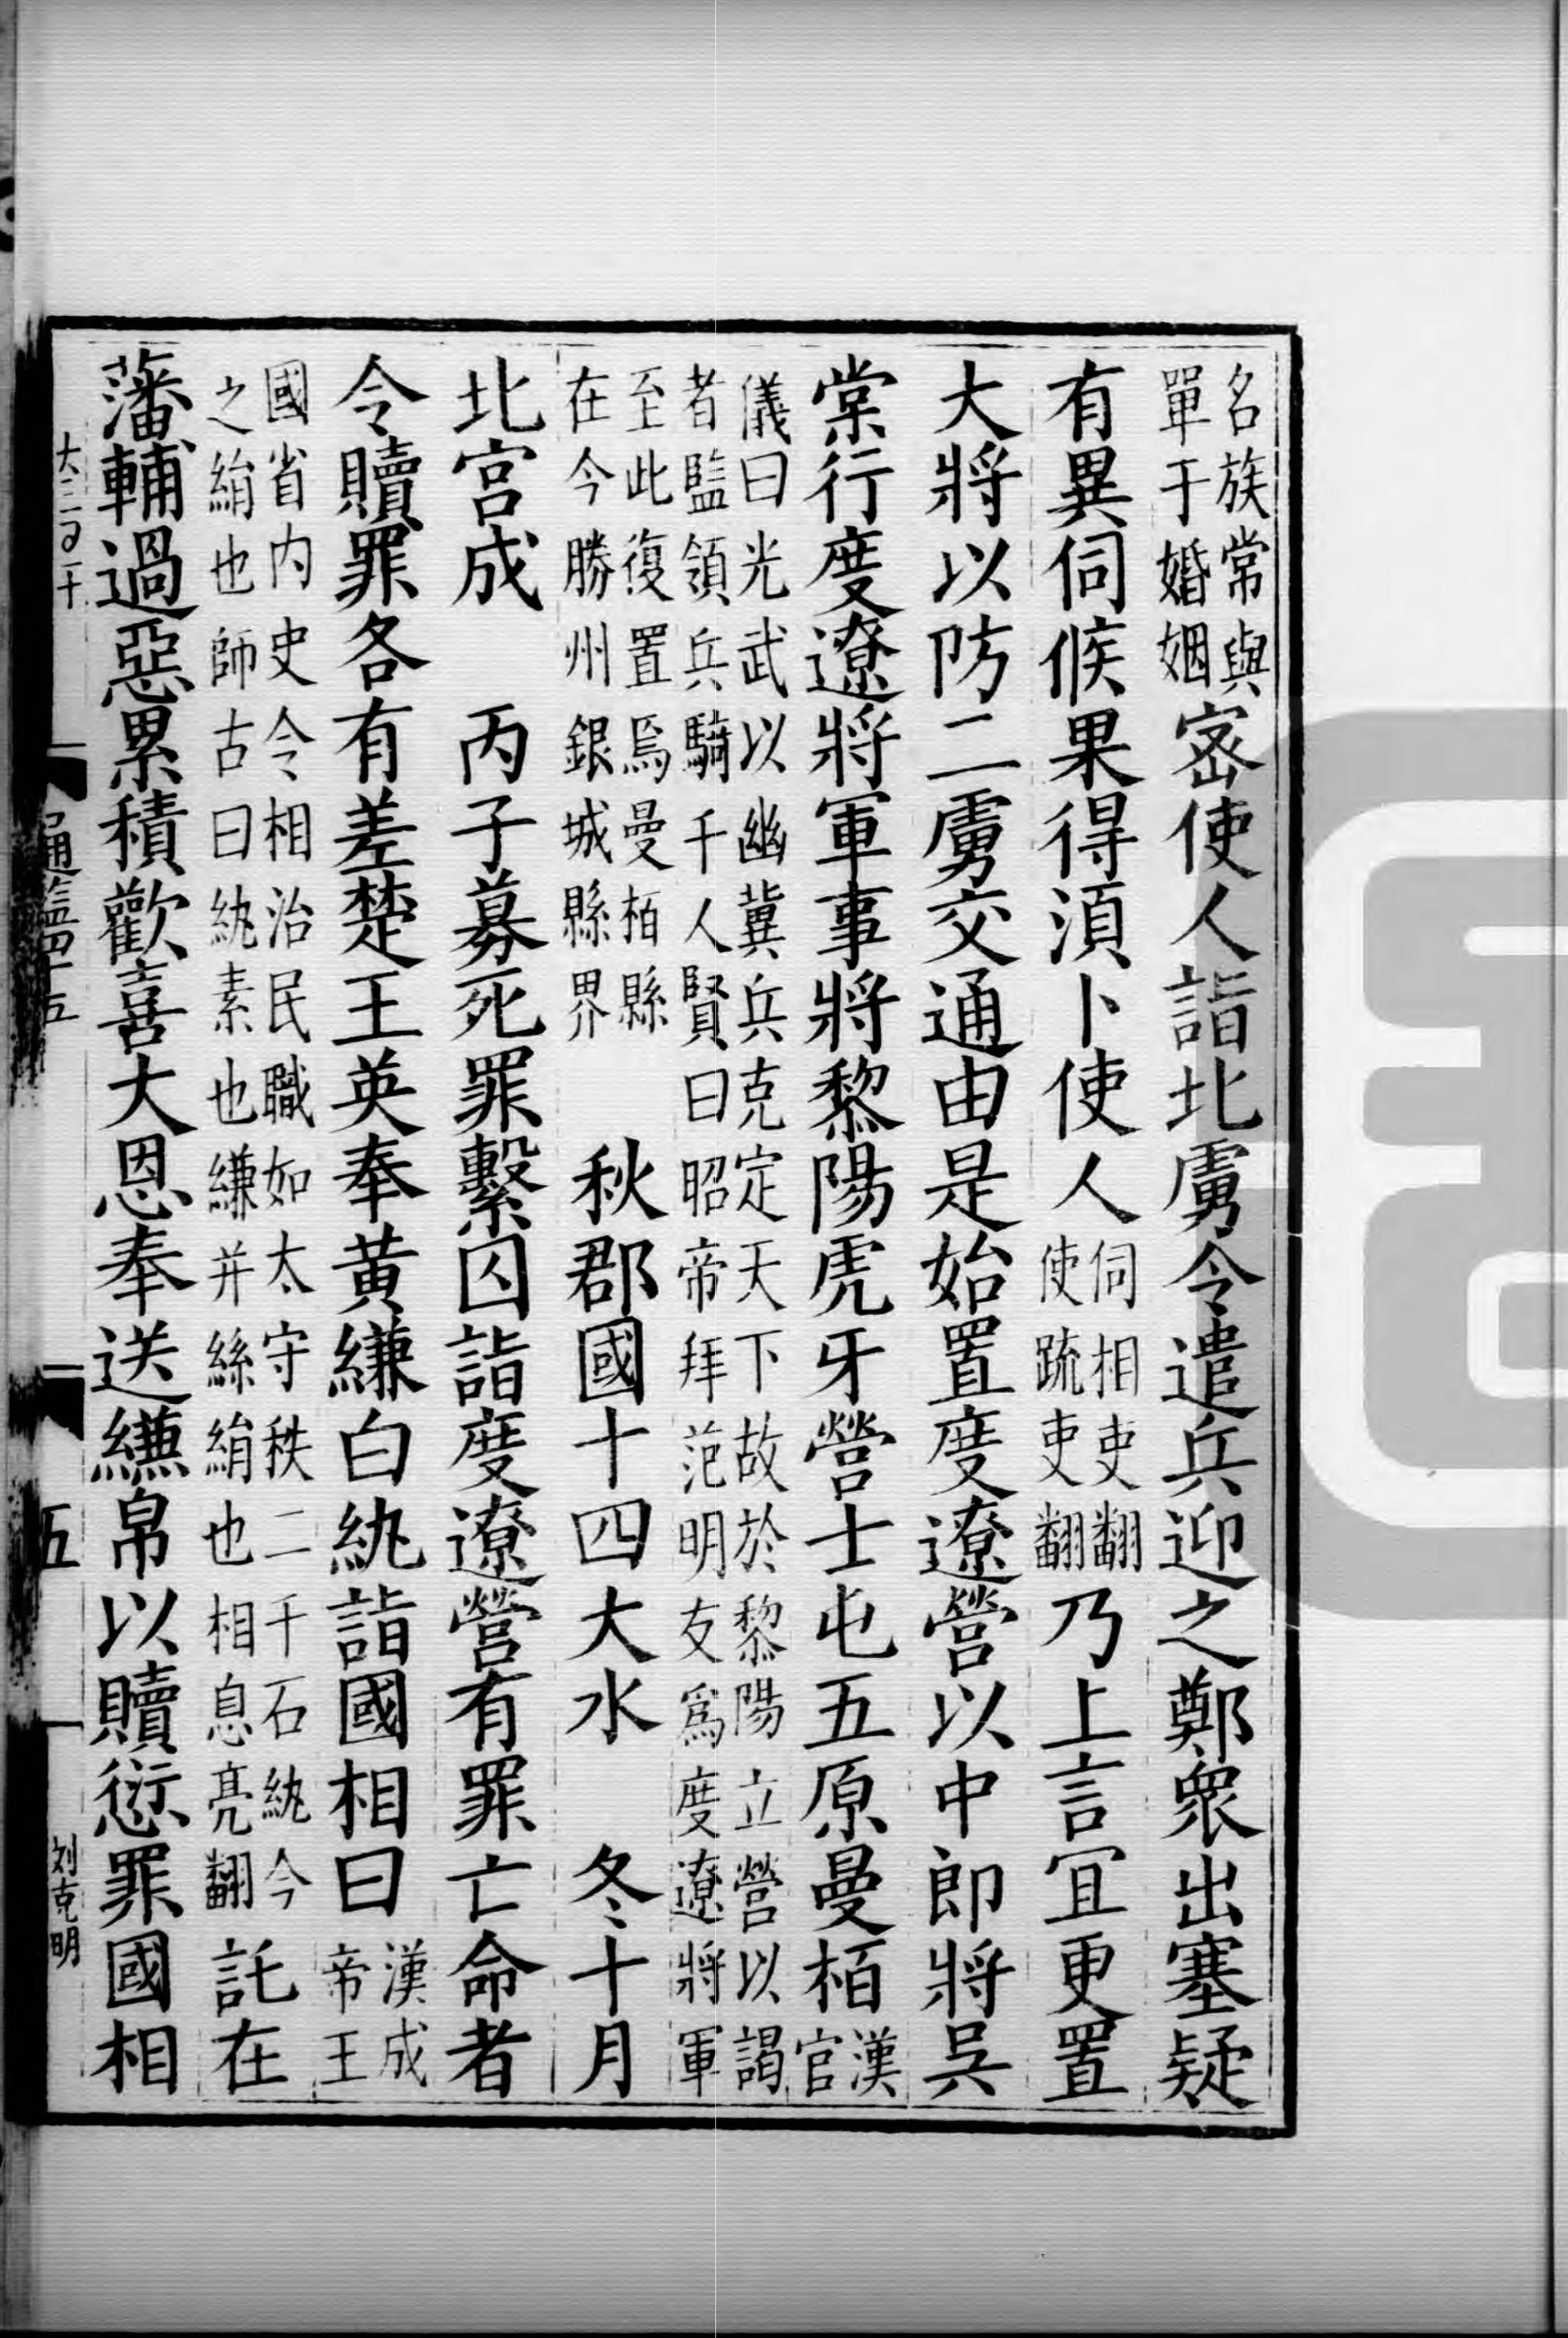 名族常與單于婚姻密使人詣北虜令遣兵迎之鄭衆出塞疑
有異伺候果得須卜使人伺相吏翻使疏吏翻乃上言宜更置
大將以防二虜交通由是始置度遼營以中郎將吳
棠行度遼將軍事將黎陽虎牙營士屯五原曼栢漢官
儀曰光武以幽冀兵克定天下故於黎陽立營以謁者監領兵騎千人賢曰昭帝拜范明友爲度遼將軍
至此復置焉曼栢縣在今勝州銀城縣界 秋郡國十四大水 冬十月
北宮成 丙子募死罪繫囚詣度遼營有罪亡命者
令贖罪各有差楚王英奉黄縑白紈詣國相曰漢成帝王
國省内史令相治民職如太守秩二千石紈今之絹也師古曰紈素也縑并絲絹也相息亮翻託在
藩輔過惡累積歡喜大恩奉送縑帛以贖愆罪國相
通鑑四十五
五
刘克明